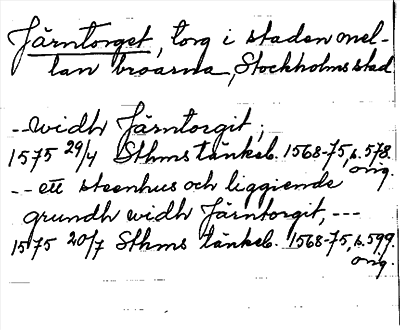 Järntorget, torg i staden mel-
lan broarna, Stockholms stad
-- widh Järntorgit;
1575 29/4 Sthms tänkeb. 1568-75, s. 578.
orig.
-- ett steenhus och liggiende
grundh widh Järntorgit, ---
1575 20/7 Sthms tänkeb. 1568-75, s. 599.
orig.